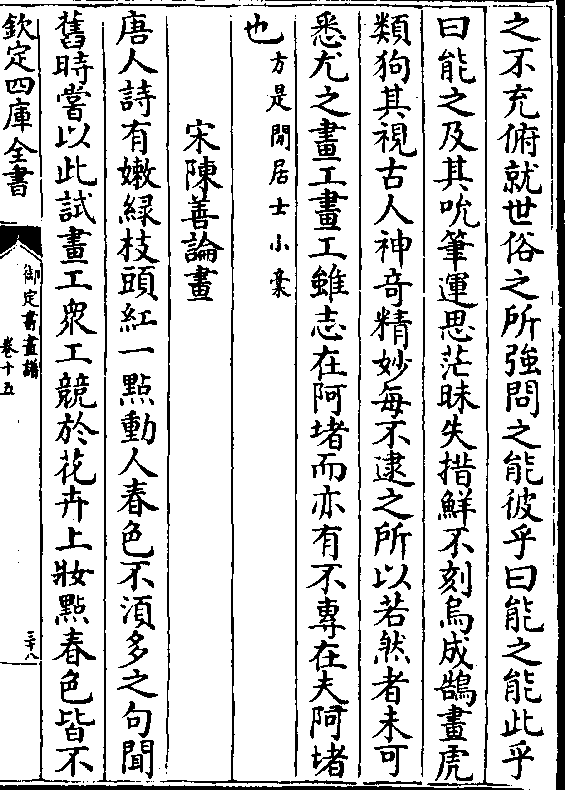 之不充俯就世俗之所強問之能彼乎曰能之能此乎
曰能之及其吮筆運思茫昧失措鮮不刻烏成鵠畫虎
類狗其視古人神奇精妙每不逮之所以若然者未可
悉尤之畫工畫工雖志在阿堵而亦有不專在夫阿堵
也方是閒居士小稾
宋陳善論畫
唐人詩有嫩緑枝頭紅一點動人春色不湏多之句聞
舊時嘗以此試畫工衆工競於花卉上妝點春色皆不
欽定四庫全書
御定書畫譜
卷十五
三十八